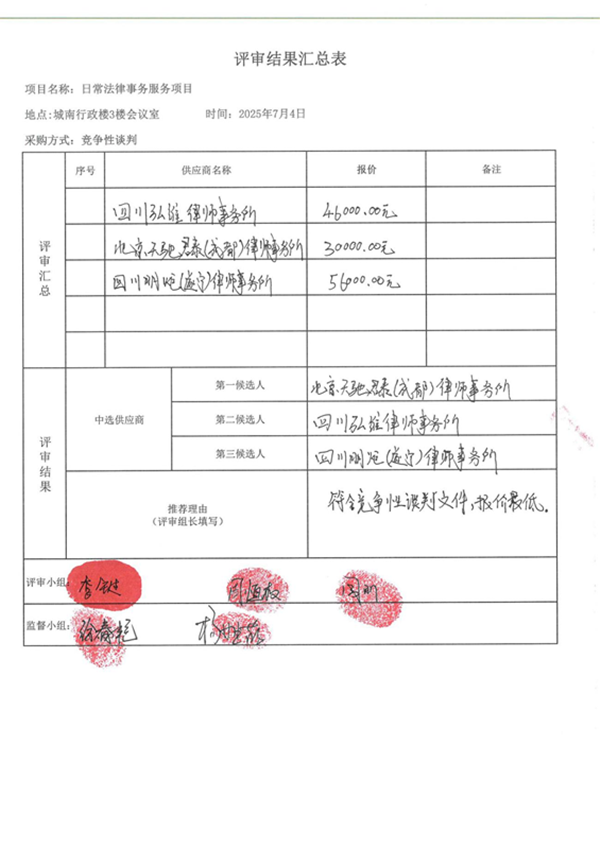 评审结果汇总表
项目名称：日常法律事务服务项目
地点:城南行政楼3楼会议室 时间：2025年7月4日
采购方式：竞争性谈判
序号 供应商名称 报价 备注
评审汇总
四川弘维律师事务所 46000.00元
北京天驰君泰(成都)律师事务所 30000.00元
四川明炬(遂宁)律师事务所 56000.00元
评审结果
中选供应商
第一候选人 北京天驰君泰(成都)律师事务所
第二候选人 四川弘维律师事务所
第三候选人 四川明炬(遂宁)律师事务所
推荐理由 符合竞争性谈判文件,报价最低.
（评审组长填写）
评审小组:
监督小组: